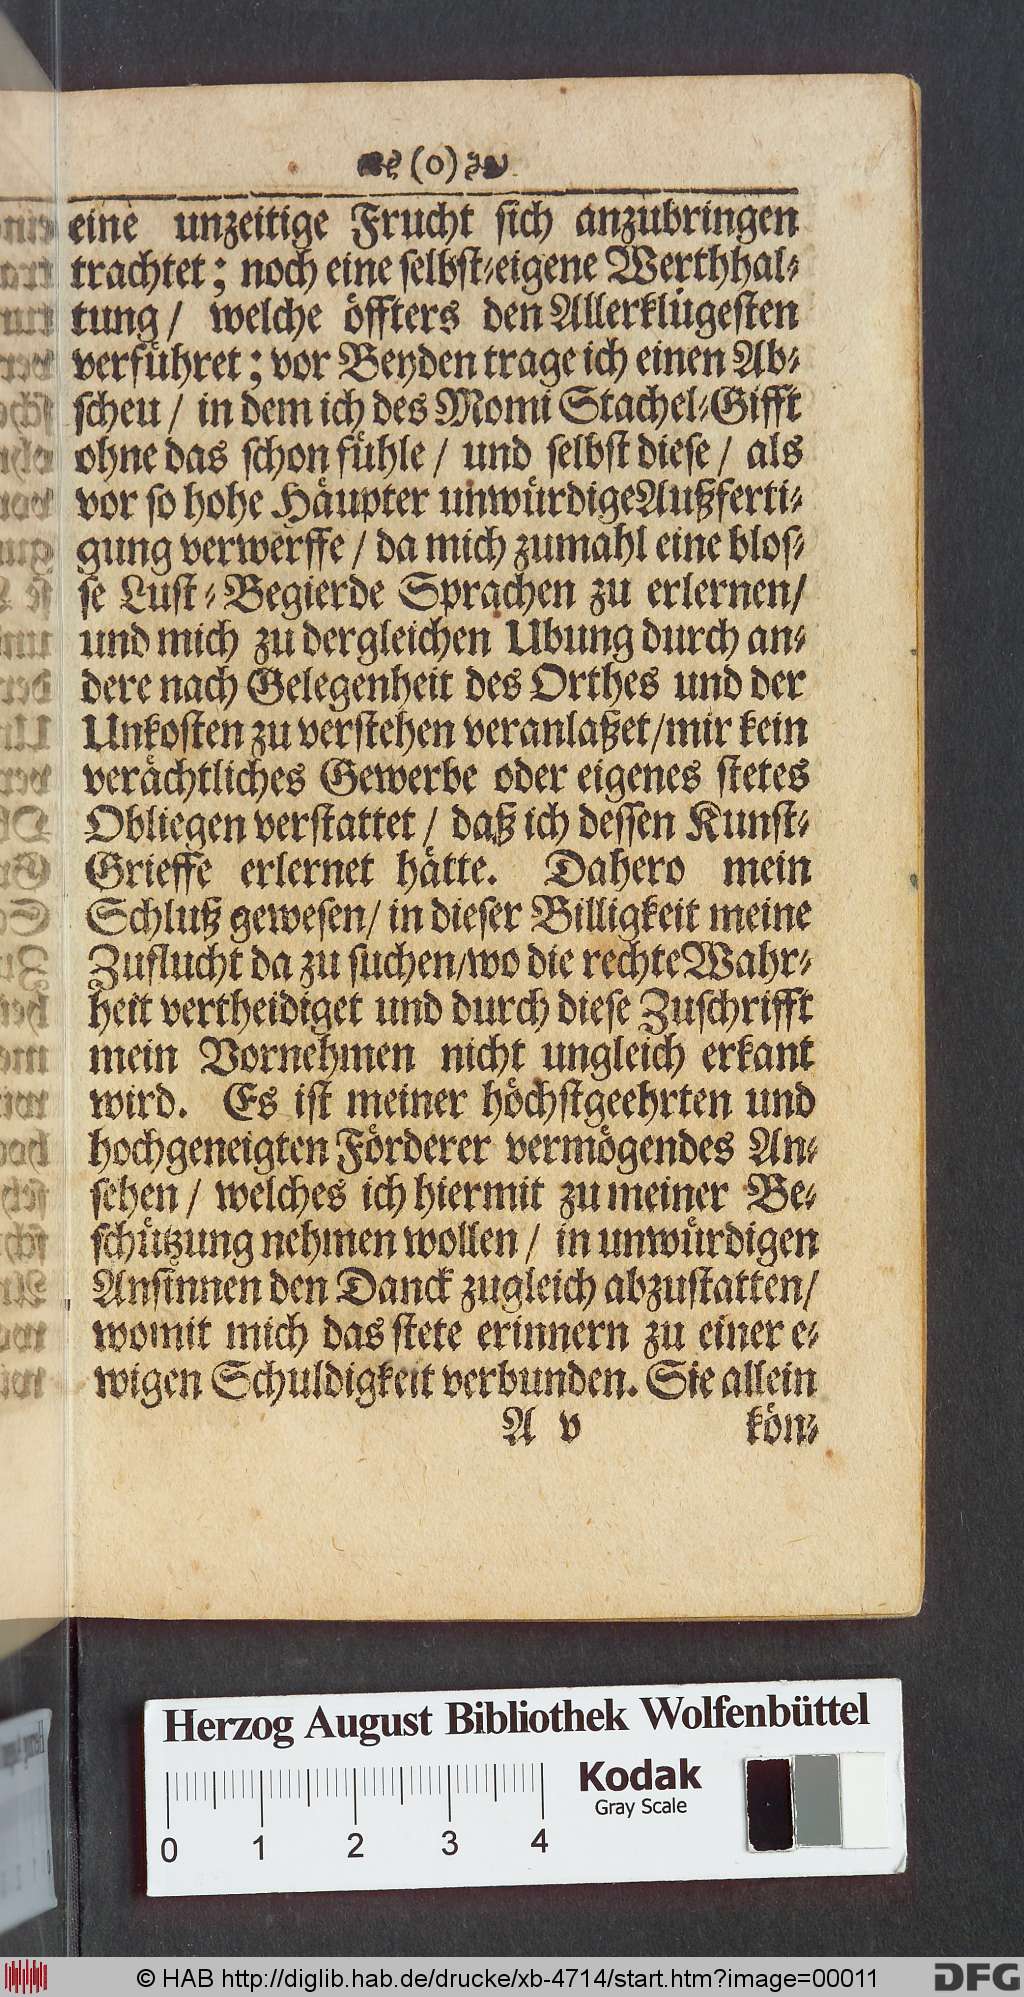 (0)
eine unzeitige Frucht sich anzubringen
trachtet; noch eine selbst-eigene Werthhal-
tung/ welche öffters den Allerklügesten
verführet; vor Beyden trage ich einen Ab-
scheu/ in dem ich des Momi Stachel-Gifft
ohne das schon fühle/ und selbst diese/ als
vor so hohe Häupter unwürdige Außferti-
gung verwerffe/ da mich zumahl eine blos-
se Lust-Begierde Sprachen zu erlernen/
und mich zu dergleichen Ubung durch an-
dere nach Gelegenheit des Orthes und der
Unkosten zu verstehen veranlaßet/ mir kein
verächtliches Gewerbe oder eigenes stetes
Obliegen verstattet/ daß ich dessen Kunst-
Grieffe erlernet hätte. Dahero mein
Schluß gewesen/ in dieser Billigkeit meine
Zuflucht da zu suchen/ wo die rechte Wahr-
heit vertheidiget und durch diese Zuschrifft
mein Vornehmen nicht ungleich erkant
wird. Es ist meiner höchstgeehrten und
hochgeneigten Förderer vermögendes An-
sehen/ welches ich hiermit zu meiner Be-
schützung nehmen wollen/ in unwürdigen
Ansinnen den Danck zugleich abzustatten/
womit mich das stete erinnern zu einer e-
wigen Schuldigkeit verbunden. Sie allein
A v kön-
Herzog August Bibliothek Wolfenbüttel
Kodak
Gray Scale
0 1 2 3 4
© HAB http://diglib.hab.de/drucke/xb-4714/start.htm?image=00011
DFG